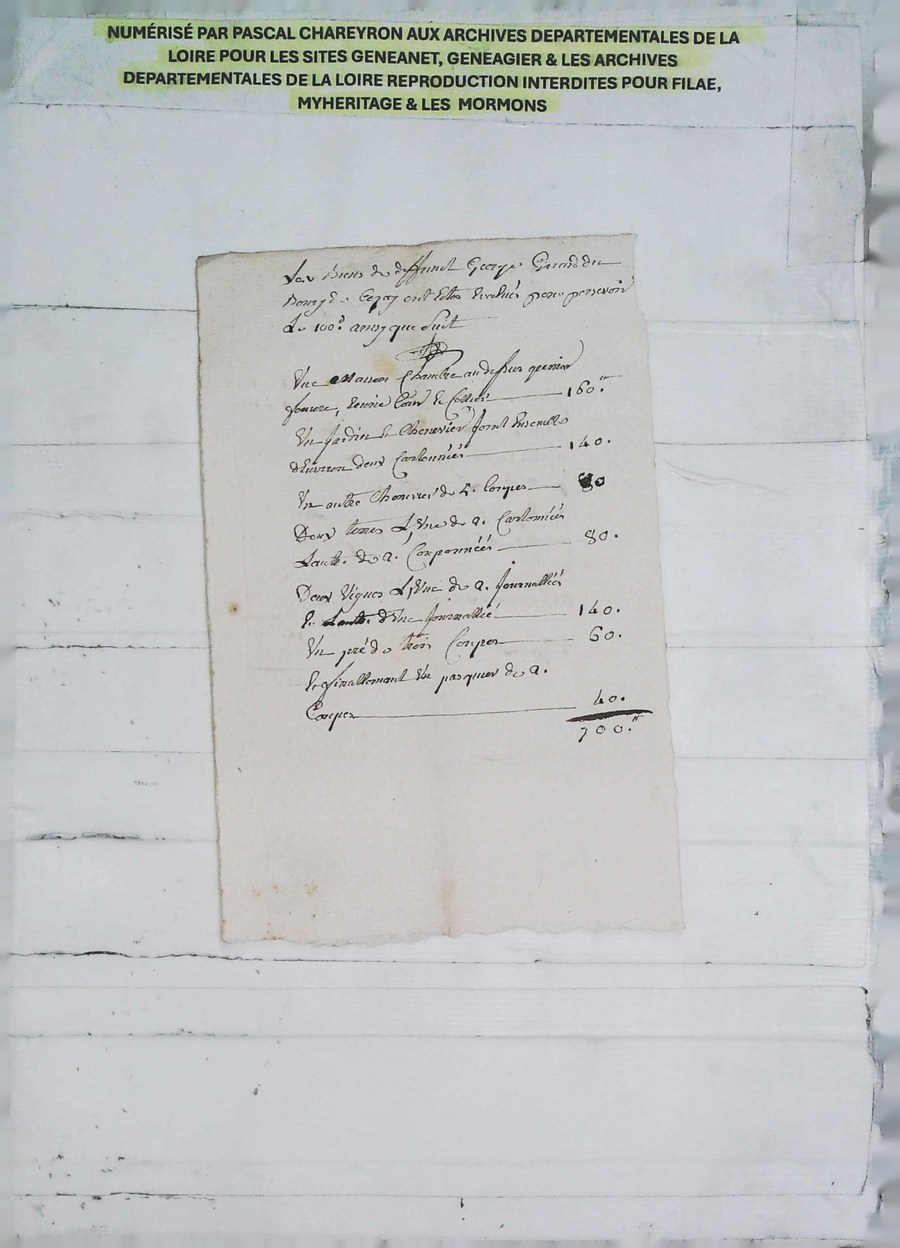 NUMÉRISÉ PAR PASCAL CHAREYRON AUX ARCHIVES DEPARTEMENTALES DE LA
LOIRE POUR LES SITES GENEANET, GENEAGIER & LES ARCHIVES
DEPARTEMENTALES DE LA LOIRE REPRODUCTION INTERDITES POUR FILAE,
MYHERITAGE & LES MORMONS
Les Biens de deffunct George
Bourg de Cezay ont Estes Evalués pour persevoir
Le 100e ainsy que Suit
Une Maison Chambre au dessus grenier
160.
Un Jardin et Chenevier Joint Ensemble
d'Environ deux Cartonnées 140.
Un autre Chenevier de 2. Coupes 80
Deux terres L'Une de 2. Cartonnées
Lautre de 2. Couponnées 80.
Deux Vignes L'Une de 2. Journallées
Et Lautre d'Une Journallée 140.
Un pré de trois Coupes 60.
Et finallemant Un pasquier de 2.
Coupes 40.
700.